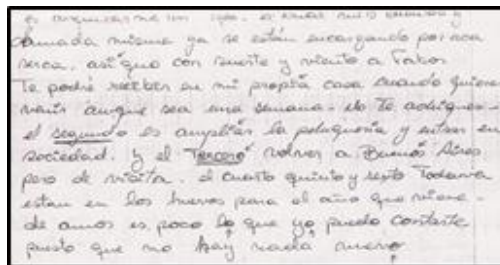 es organizarme un
llamada misma ya se están encargando por aca
serca. así que con suerte y viento a favor
Te podré recibir en mi propia casa cuando quieras
venir aunque sea una semana.
el segundo es ampliar la peluquería y entrar en
sociedad. y el Tercero volver a Buenos Aires
pero de visita. el cuarto quinto y sexto Todavía
estan en los huevos para el año que viene.
de amor es poco lo que yo puedo contarte
puesto que no hay nada nuevo